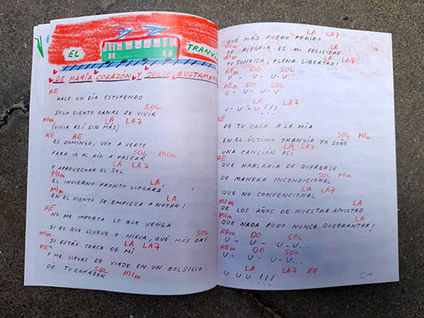 EL TRANVÍA
DE MARÍA CORAZÓN Y JULIO BUSTAMANTE
RE
HACE UN DÍA ESTUPENDO
SOL
SOLO SIENTO GANAS DE VIVIR
MIm LA LA7
(VIVIR ASÍ SIN MÁS)
RE
ES DOMINGO, VOY A VERTE
SOL MIm
PARA IR AL RÍO A PASEAR
LA LA7
Y APROVECHAR EL SOL
MIm
EL INVIERNO PRONTO LLEGARÁ
MIm LA
EN EL VIENTO SE EMPIEZA A NOTAR!
RE
NO ME IMPORTA LO QUE VENGA
SOL
SI ES QUE LLUEVE O NIEVA, QUÉ MÁS DA!
MIm LA LA7
SI ESTÁS CERCA DE MÍ
RE
Y ME LLEVAS DE VIAJE EN UN BOLSILLO
SOL MIm
DE TU CORAZÓN
LA LA7
QUÉ MÁS PUEDO PEDIR!
LA
TU ALEGRÍA ES MI FELICIDAD
TU SONRISA, PLENA LIBERTAD!
DO SOL
U - U - U...
DO SOL
U - U - U...
LA LA7
U - U - U!!!
DE TU CASA A LA MÍA
SOL MIm
EN EL ÚLTIMO TRANVÍA YO SOÑÉ
LA LA7
UNA CANCIÓN ASÍ
RE
QUE HABLARÍA DE QUERERSE
SOL
DE MANERA INCONDICIONAL
MIm LA LA7
QUE NO CONVENCIONAL
MIm LA
DE LOS AÑOS DE NUESTRA AMISTAD
MIm LA
QUE NADA PUDO NUNCA QUEBRANTAR!
DO SOL
U - U - U...
DO SOL
U - U - U...
LA LA7 RE
U U U!!!